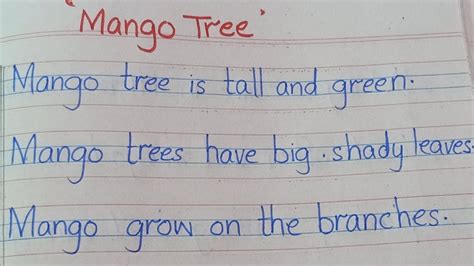 'Mango Tree'
Mango tree is tall and green.
Mango trees have big . shady leaves.
Mango grow on the branches.